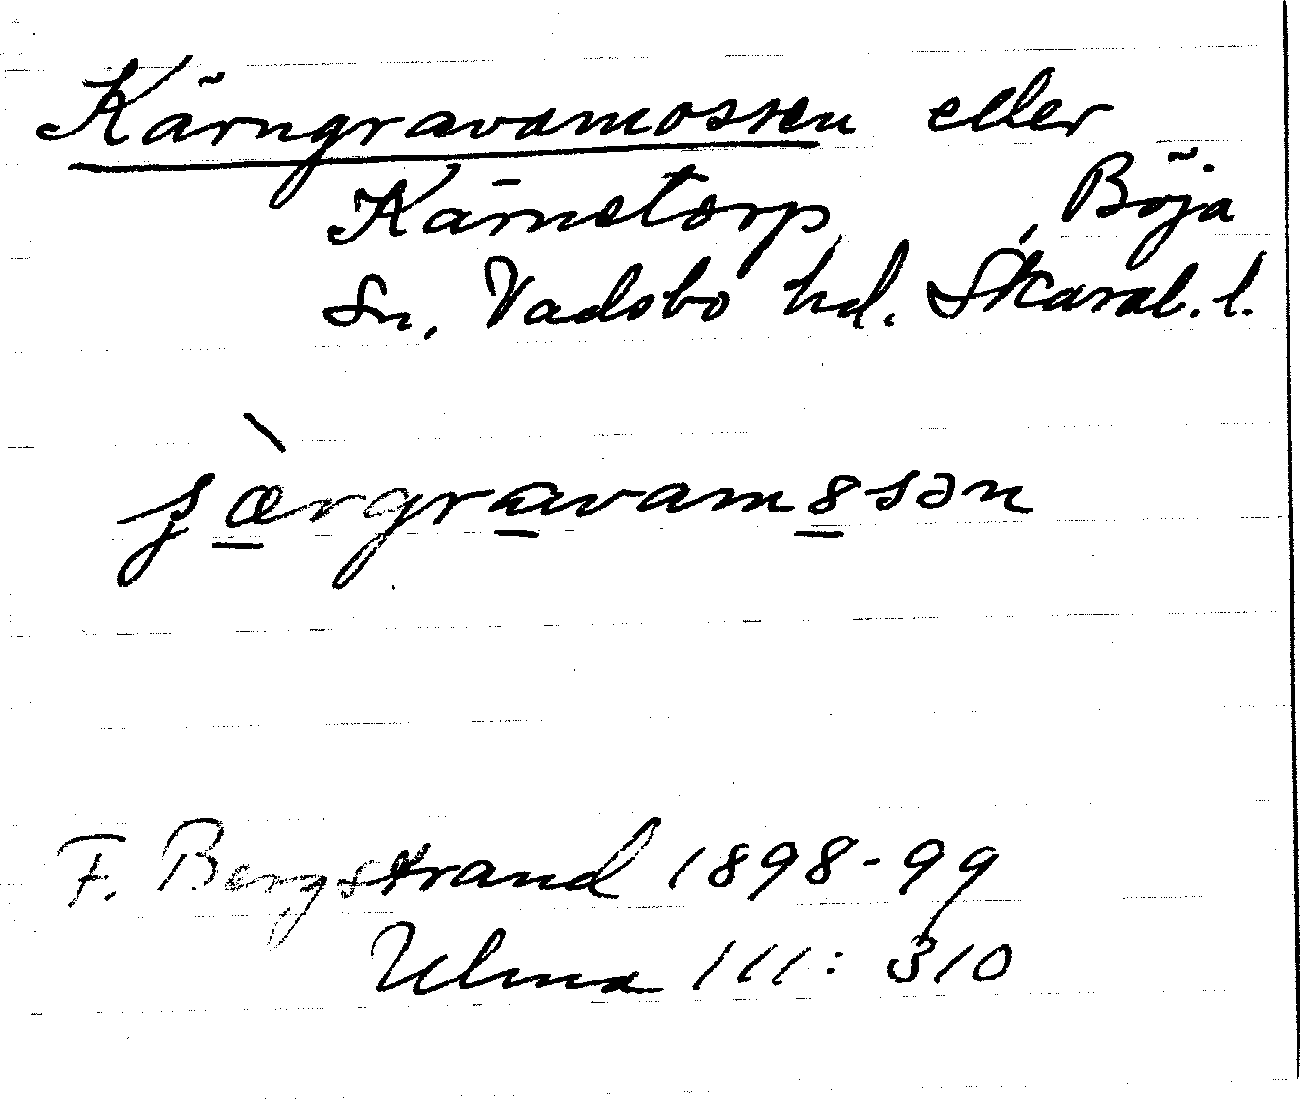 Kärngravamossen eller
Kärnetorp, Böja
Sn. Vadsbo hd. Skarab. l.
ʂærgravam8sən
F. Bergstrand 1898-99
Ulma 111: 310